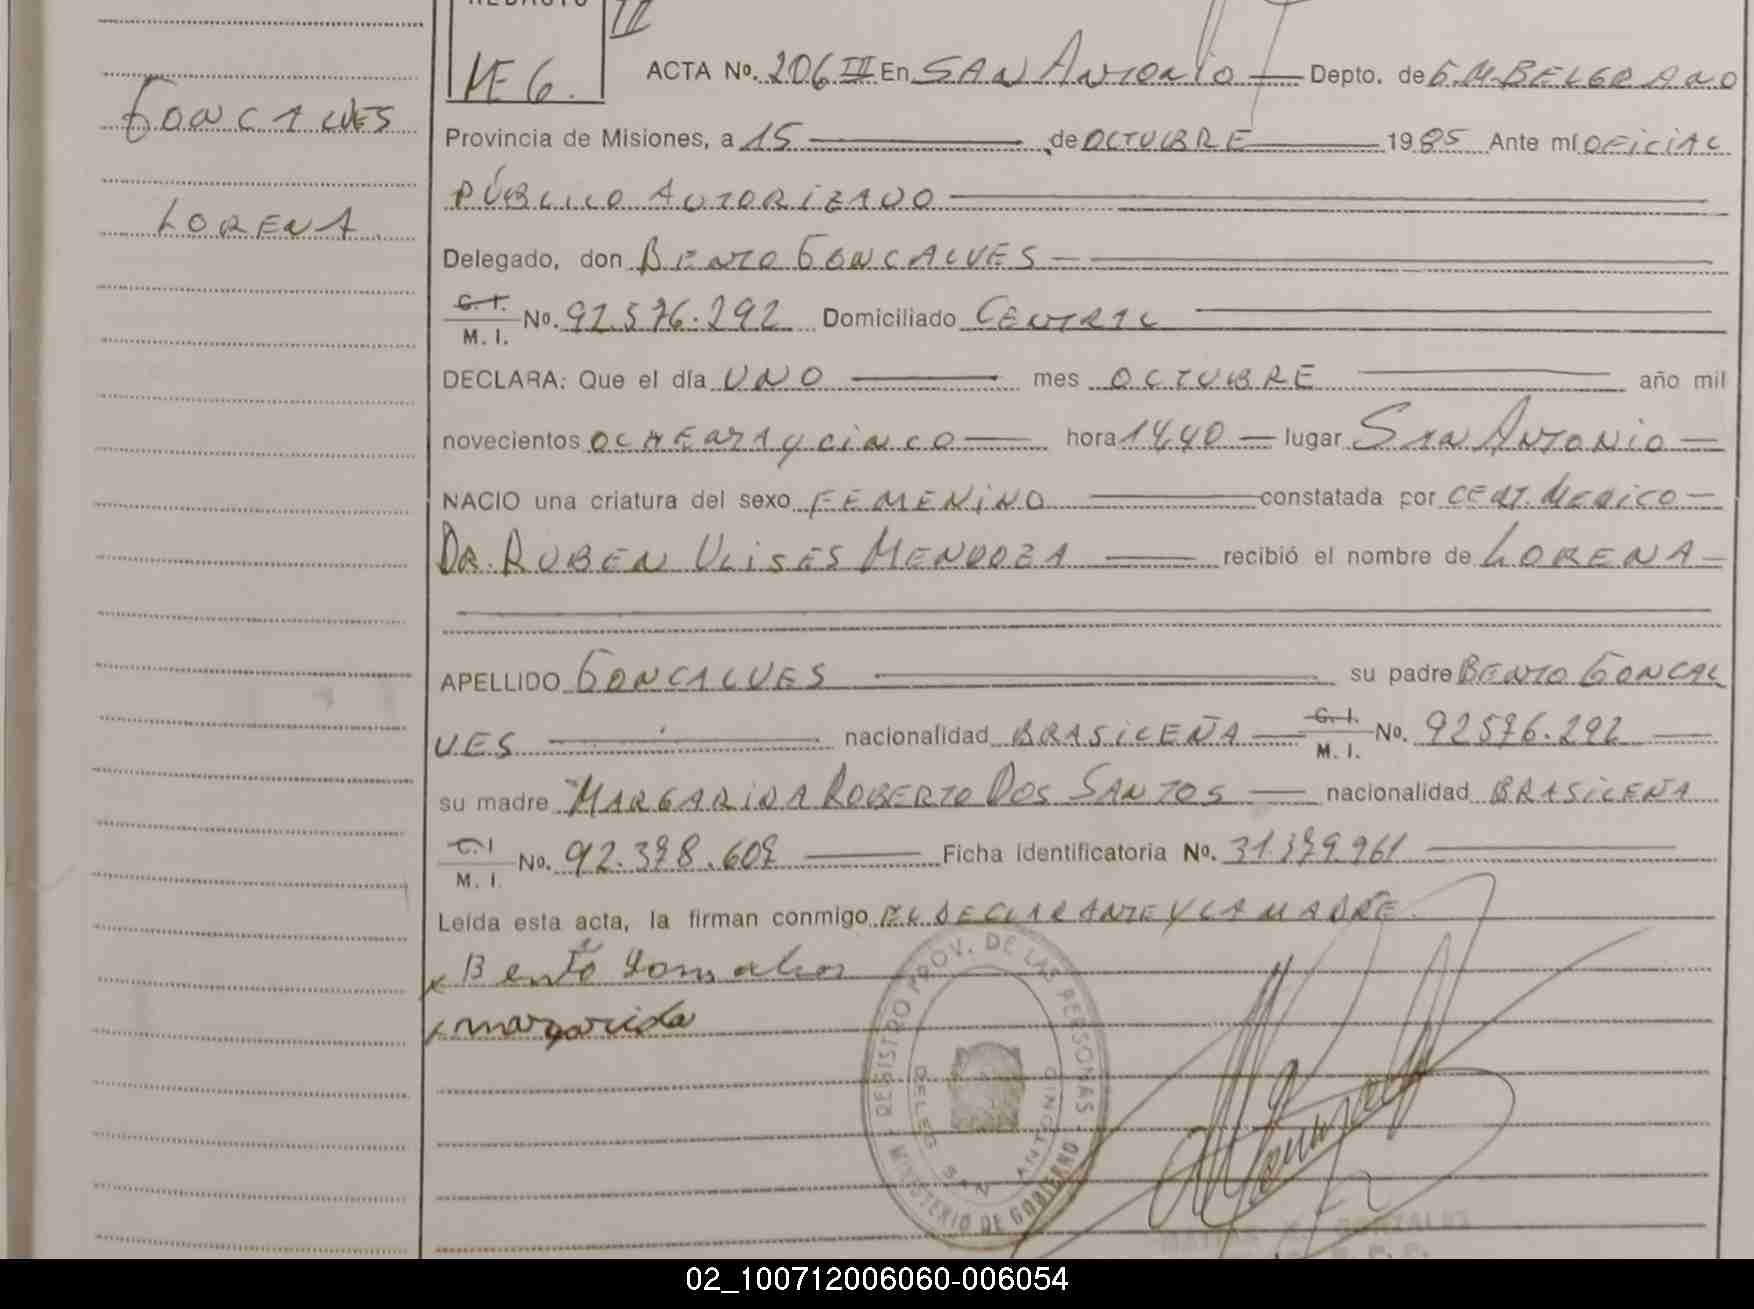 GONCALVES
LORENA
REDACTO
III
VEG.
ACTA No. 206 III En SAN ANTONIO Depto. de G.M. BELGRANO
Provincia de Misiones, a 15 de OCTUBRE 1985 Ante mí OFICIAL
PÚBLICO AUTORIZADO
Delegado, don BENTO GONCALVES
C. I.
M. I. No. 92.576.292 Domiciliado CENTRAL
DECLARA: Que el día UNO mes OCTUBRE año mil
novecientos OCHENTA Y CINCO hora 14,40 lugar SAN ANTONIO
NACIO una criatura del sexo FEMENINO constatada por CERT. MEDICO
DR. RUBEN ULISES MENDOZA recibió el nombre de LORENA
APELLIDO GONCALVES su padre BENTO GONCAL
VES nacionalidad BRASILEÑA C. I. M. I. No. 92576.292
su madre MARGARIDA ROBERTO DOS SANTOS nacionalidad BRASILEÑA
C. I
M. I. No. 92.378.607 Ficha identificatoria No. 31.379.961
Leída esta acta, la firman conmigo EL DECLARANTE Y LA MADRE.
x Bento Gonsalves
x margarida
REGISTRO PROV. DE LAS PERSONAS
DELEG. SAN ANTONIO
MINISTERIO DE GOBIERNO
02_100712006060-006054